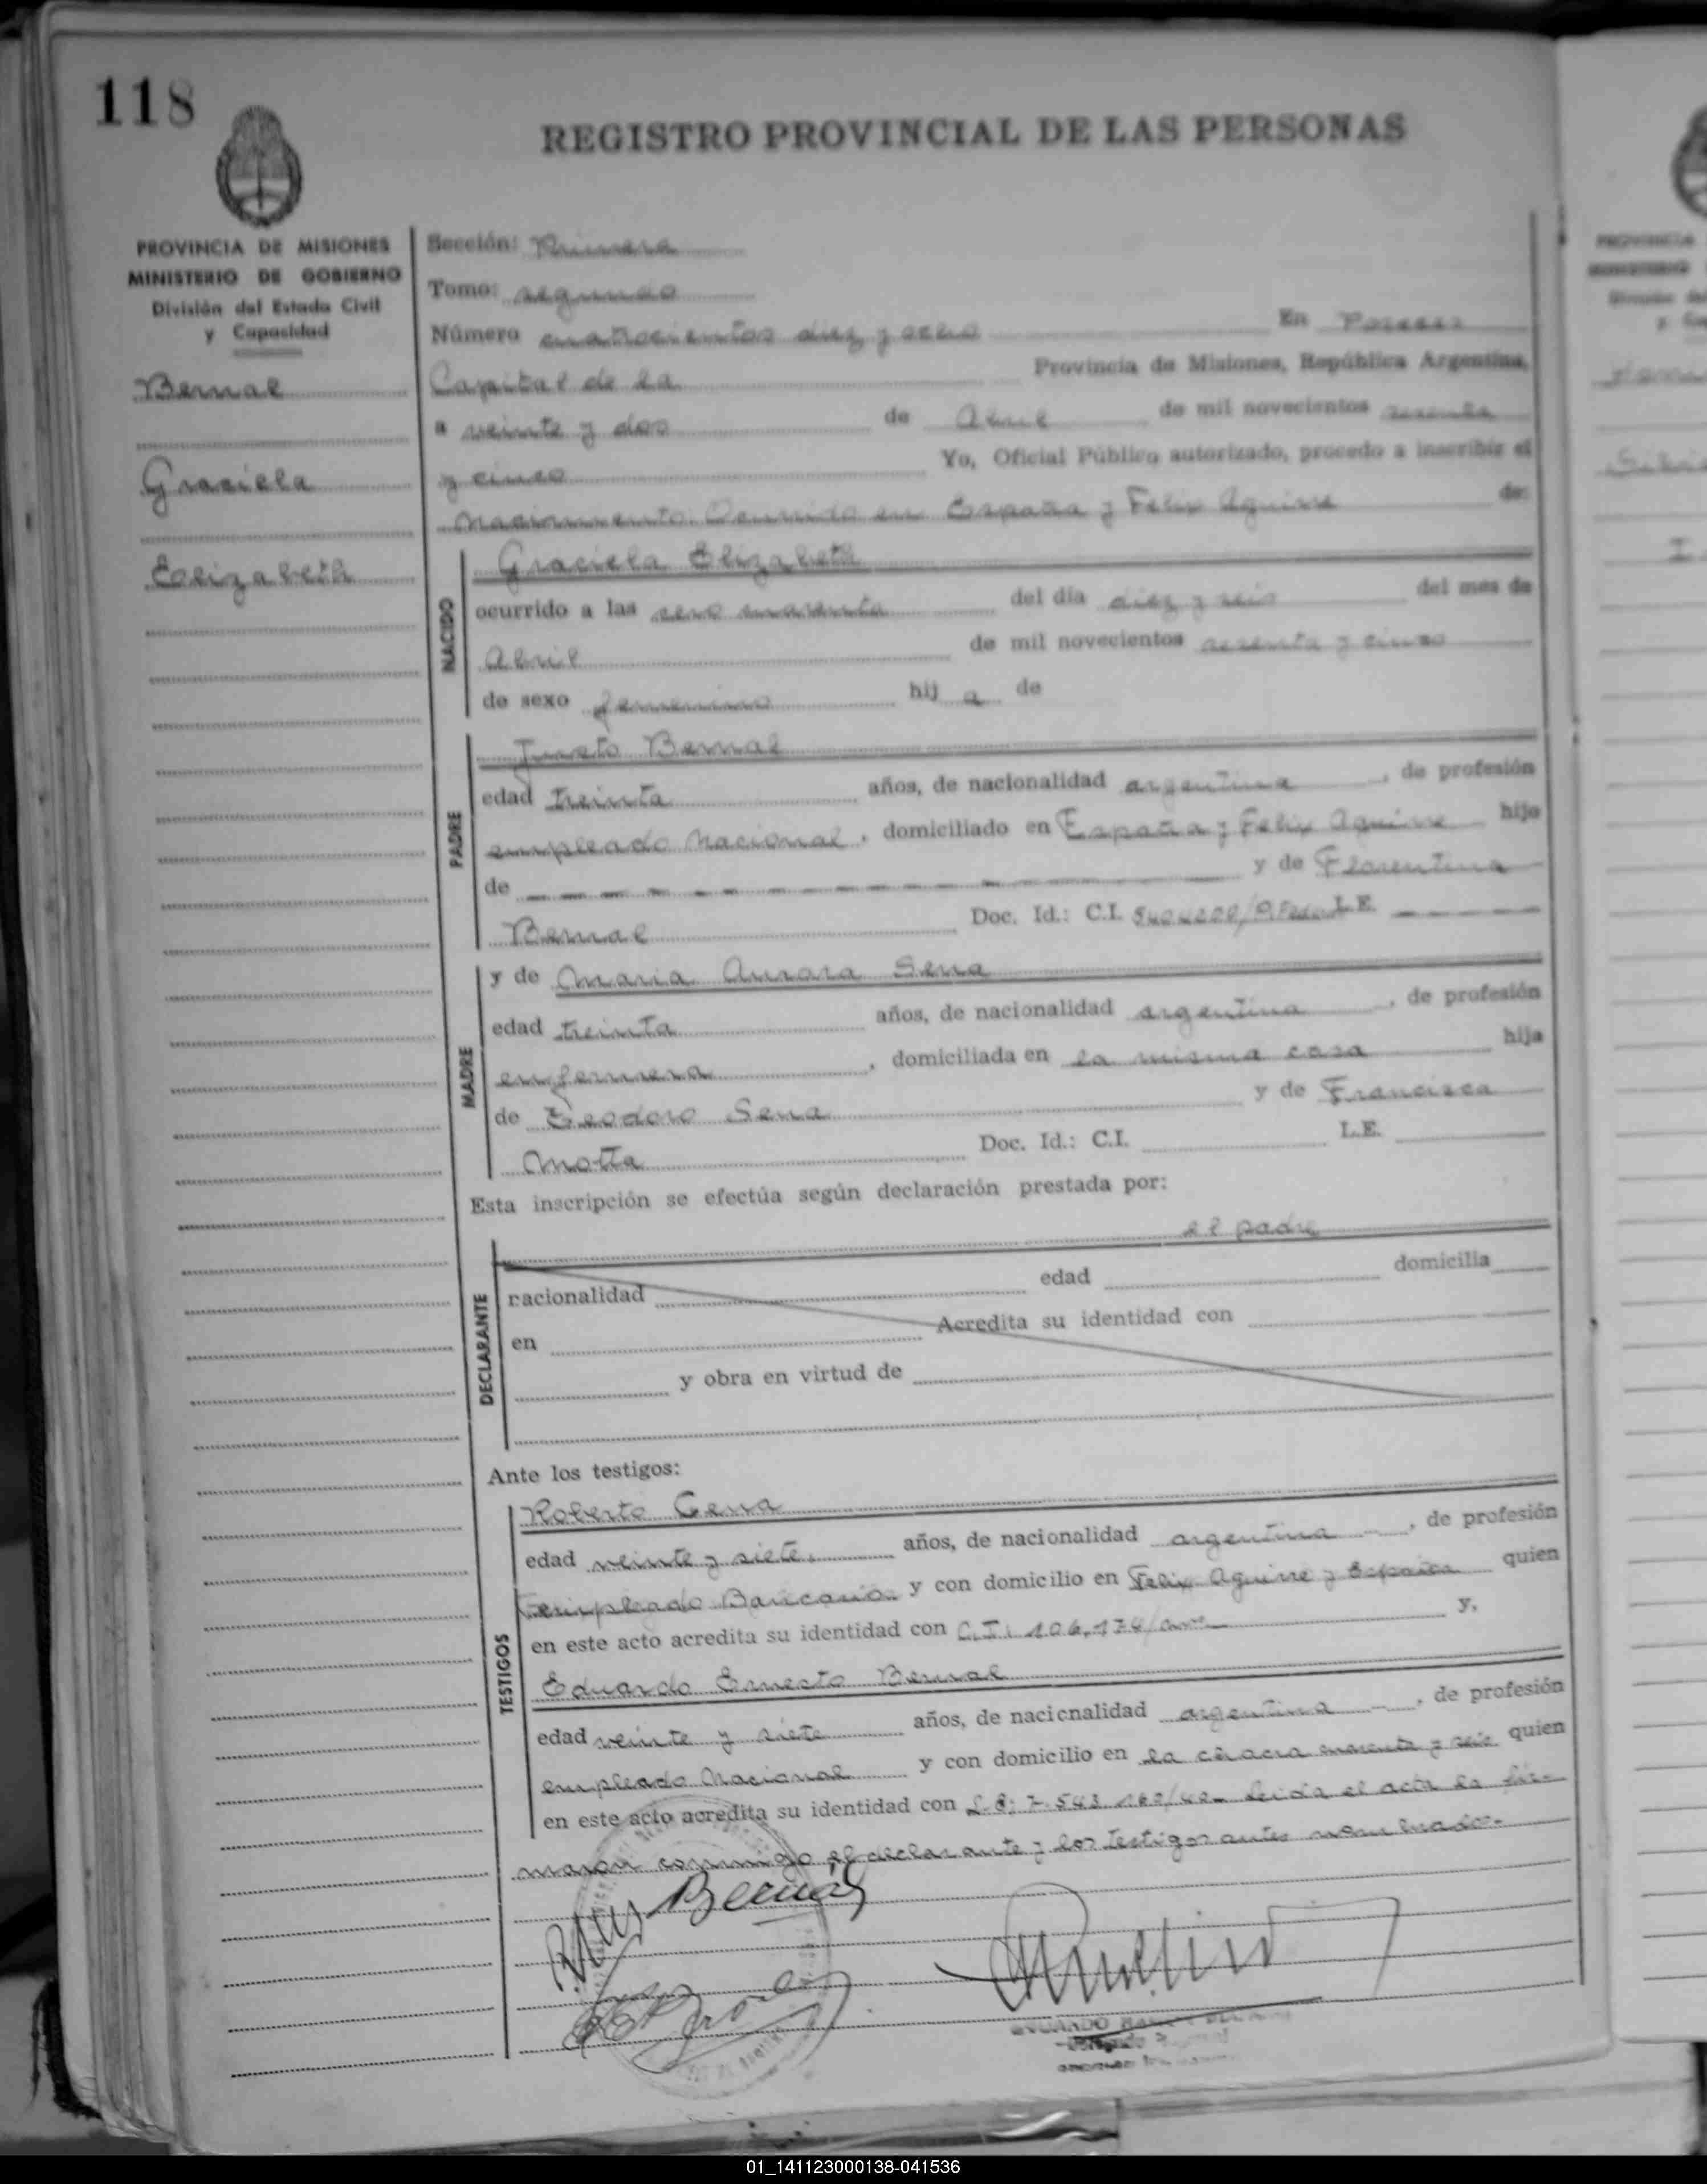 118
REGISTRO PROVINCIAL DE LAS PERSONAS
PROVINCIA DE MISIONES
MINISTERIO DE GOBIERNO
División del Estado Civil
y Capacidad
Bernal
Graciela
Eolizabeth
Sección: Primera
Tomo: segundo
Número cuatrocientos diez y ocho En Posadas
Capital de la Provincia de Misiones, República Argentina,
a veinte y dos de Abril de mil novecientos sesenta
y cinco Yo, Oficial Público autorizado, procedo a inscribir el
Nacimiento. Ocurrido en España y Felix Aguirre de:
NACIDO
Graciela Elizabeth
ocurrido a las cero cuarenta del día diez y seis del mes de
Abril de mil novecientos sesenta y cinco
de sexo femenino hij a de
PADRE
Justo Bernal
edad treinta años, de nacionalidad argentina, de profesión
empleado Nacional, domiciliado en España y Felix Aguirre hijo
de y de Florentina
Bernal Doc. Id.: C.I. L.E.
MADRE
y de Maria Aurora Sena
edad treinta años, de nacionalidad argentina, de profesión
enfermera, domiciliada en la misma casa hija
de Teodoro Sena y de Francisca
Motta Doc. Id.: C.I. L.E.
Esta inscripción se efectúa según declaración prestada por:
el padre
DECLARANTE
nacionalidad edad domicilia
en Acredita su identidad con
y obra en virtud de
Ante los testigos:
TESTIGOS
Roberto Cena
edad veinte y siete. años, de nacionalidad argentina, de profesión
Empleado Bancario y con domicilio en Felix Aguirre y España quien
en este acto acredita su identidad con C.I. 106.174/ y,
Eduardo Ernesto Bernal
edad veinte y siete años, de nacionalidad argentina, de profesión
empleado Nacional y con domicilio en la chacra cuarenta y seis quien
en este acto acredita su identidad con 7.543.160/ Leida el acta la fir-
maron conmigo el declarante y los testigos antes nombrados.
Bernal
01_141123000138-041536